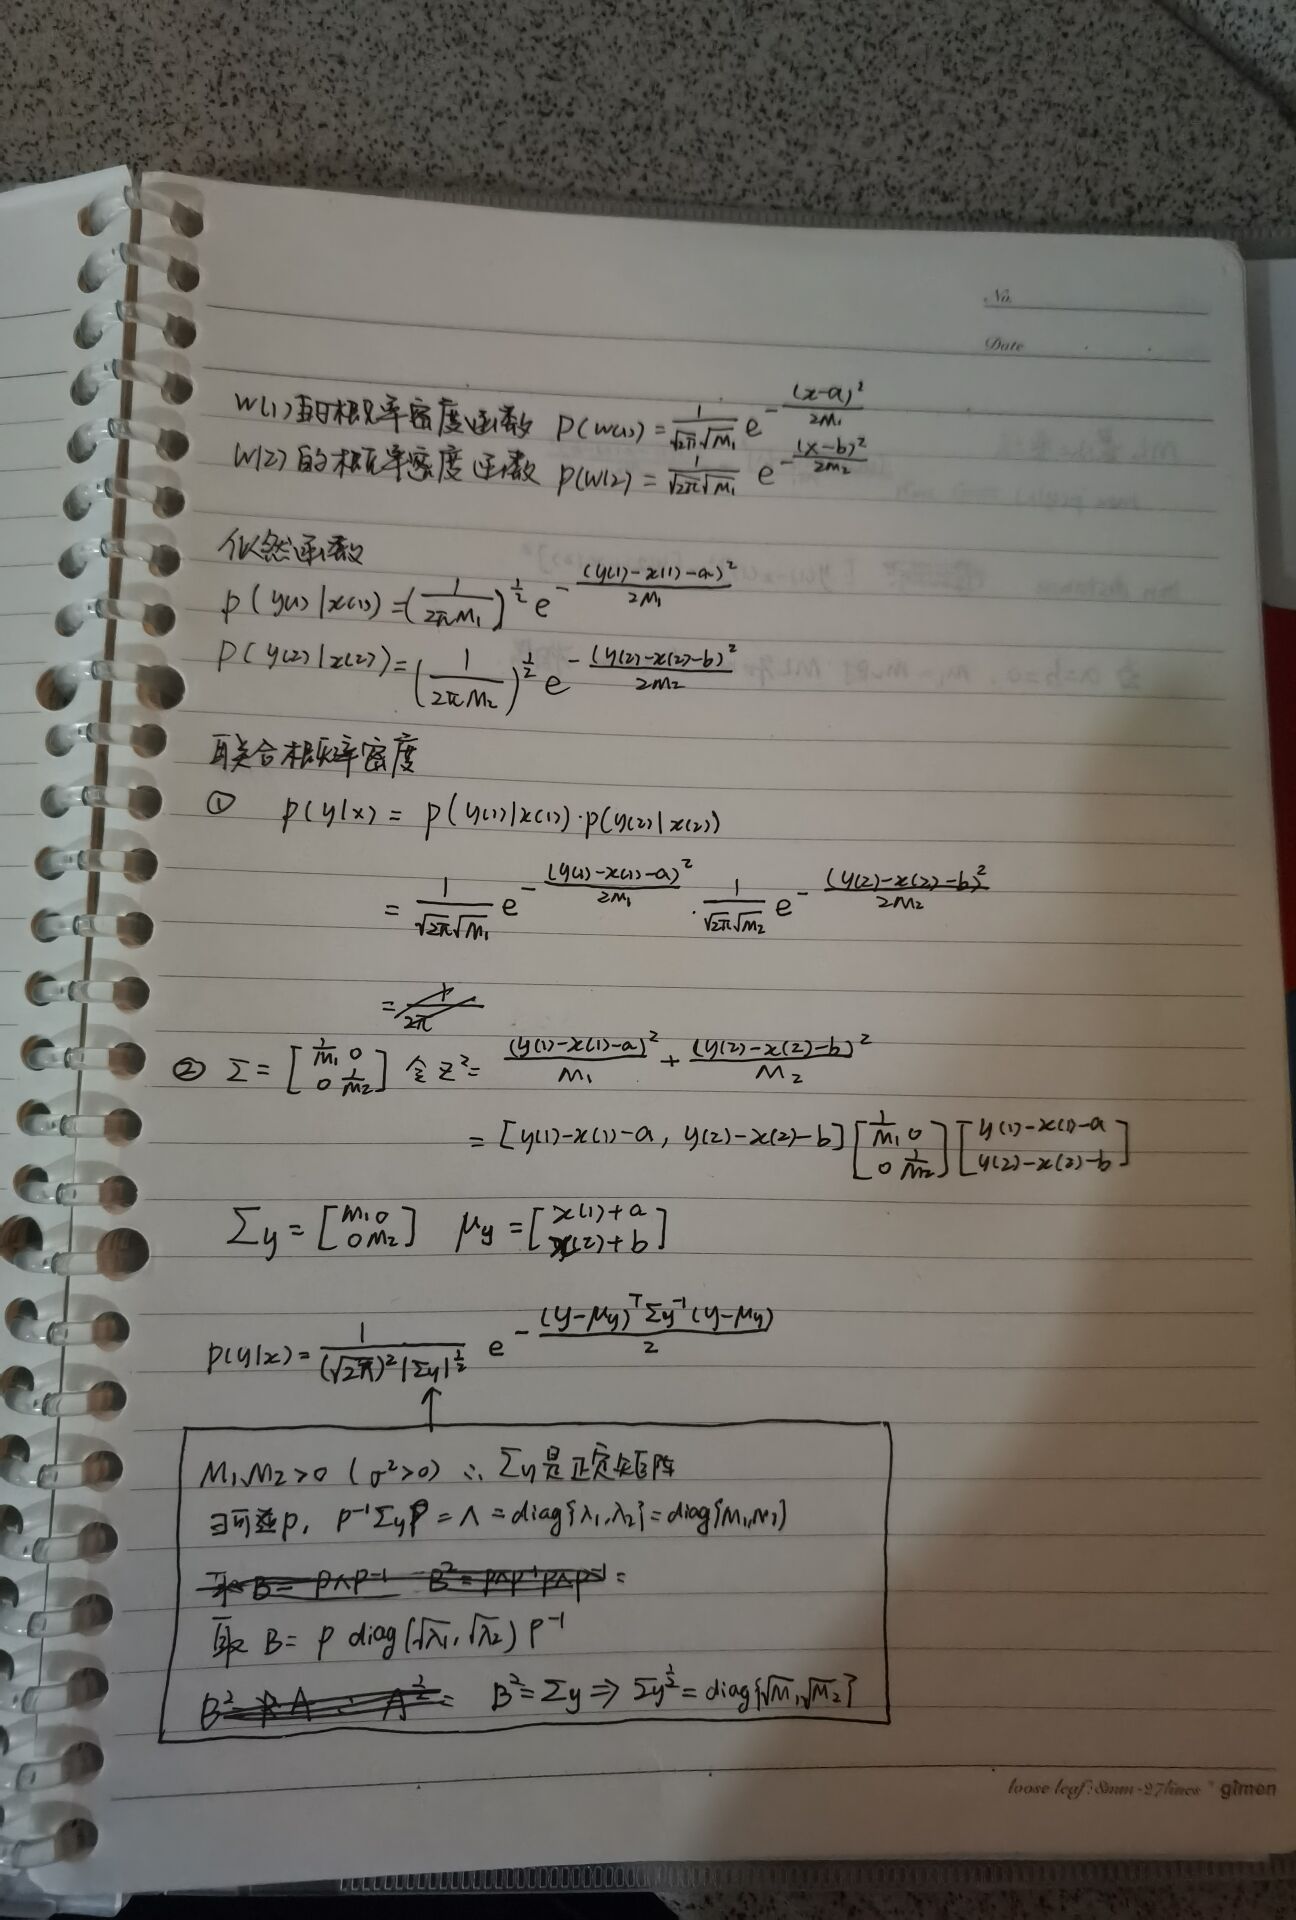 No.
Date
W(1)的概率密度函数 P(W(1)) = \frac{1}{\sqrt{2π}\sqrt{M_1}} e^{-\frac{(x-a)^2}{2M_1}}
W(2)的概率密度函数 P(W(2)) = \frac{1}{\sqrt{2π}\sqrt{M_1}} e^{-\frac{(x-b)^2}{2M_2}}
似然函数
P(y(1)|x(1)) = (\frac{1}{2πM_1})^{\frac{1}{2}} e^{-\frac{(y(1)-x(1)-a)^2}{2M_1}}
P(y(2)|x(2)) = (\frac{1}{2πM_2})^{\frac{1}{2}} e^{-\frac{(y(2)-x(2)-b)^2}{2M_2}}
联合概率密度
① P(y|x) = P(y(1)|x(1))·P(y(2)|x(2))
= \frac{1}{\sqrt{2π}\sqrt{M_1}} e^{-\frac{(y(1)-x(1)-a)^2}{2M_1}} · \frac{1}{\sqrt{2π}\sqrt{M_2}} e^{-\frac{(y(2)-x(2)-b)^2}{2M_2}}
= \frac{1}{2π}
② Σ = [\frac{1}{M_1} 0; 0 \frac{1}{M_2}] 令 z^2 = \frac{(y(1)-x(1)-a)^2}{M_1} + \frac{(y(2)-x(2)-b)^2}{M_2}
= [y(1)-x(1)-a, y(2)-x(2)-b] [\frac{1}{M_1} 0; 0 \frac{1}{M_2}] [y(1)-x(1)-a; y(2)-x(2)-b]
Σy = [M_1 0; 0 M_2] μy = [x(1)+a; x(2)+b]
P(y|x) = \frac{1}{(\sqrt{2π})^2|Σy|^{\frac{1}{2}}} e^{-\frac{(y-μy)^T Σy^{-1}(y-μy)}{2}}
M_1、M_2>0 (σ^2>0) ∴ Σy是正定矩阵
∃可逆P, P^{-1}ΣyP = Λ = diag{λ_1,λ_2} = diag{M_1,M_2}
取 B = PΛP^{-1} B^2 = PΛP^{-1}PΛP^{-1} =
取 B = P diag(\sqrt{λ_1},\sqrt{λ_2}) P^{-1}
B^2 = Σy ⇒ Σy^{\frac{1}{2}} = diag{\sqrt{M_1},\sqrt{M_2}}
loose leaf : 8mm - 27 lines gimon